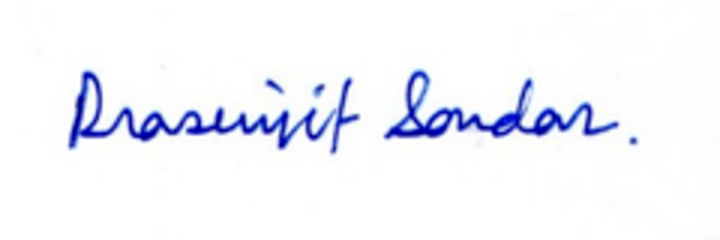 Prasenjit Sondar.